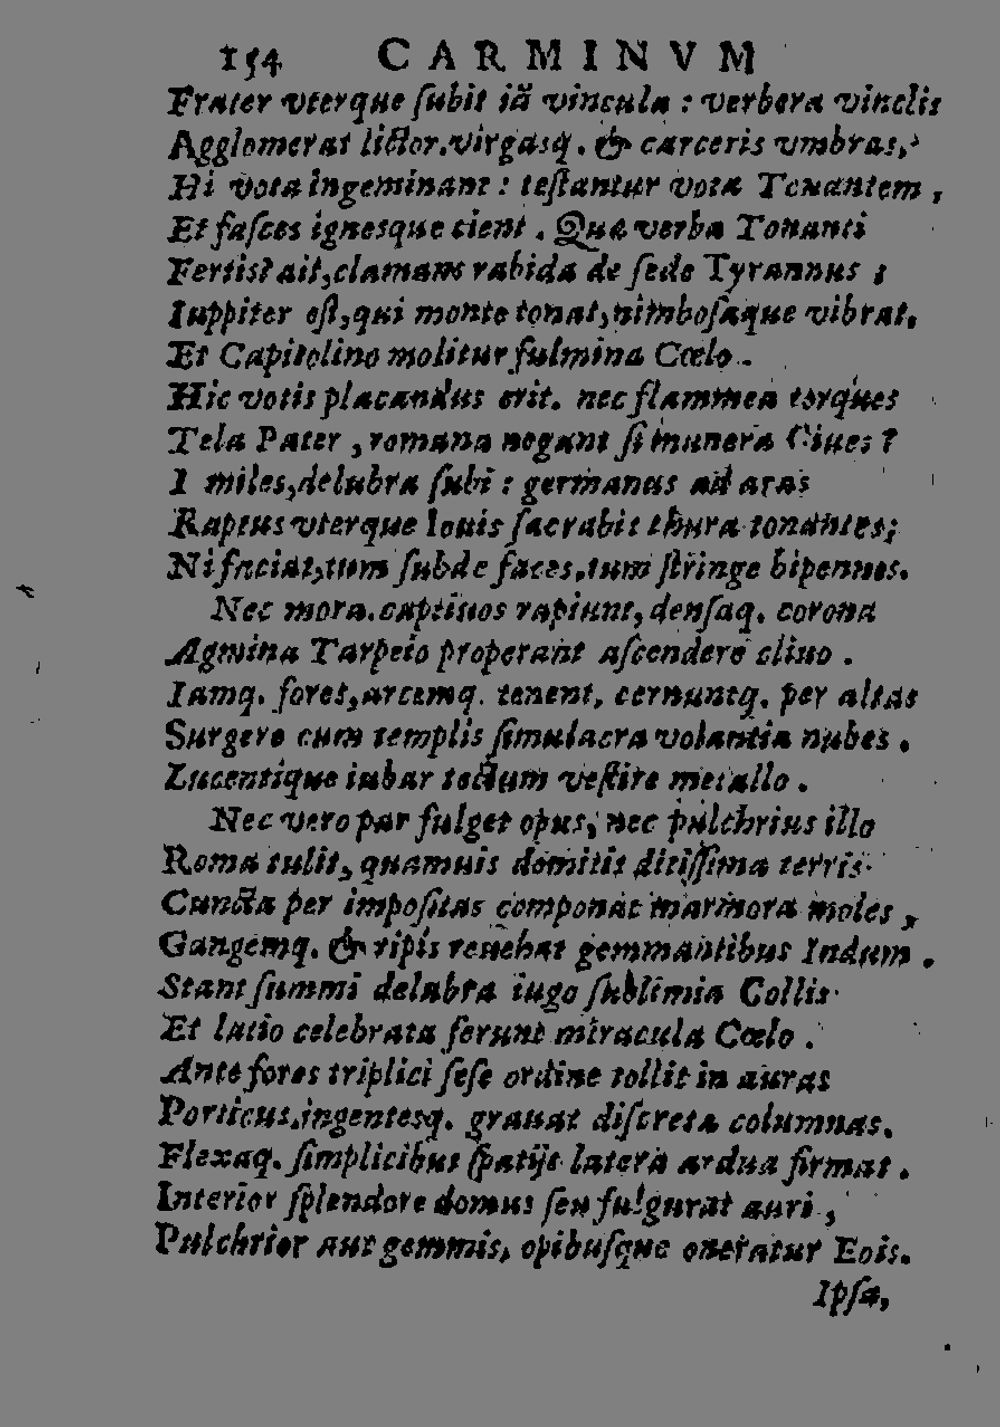 154 CARMINVM
Frater vterque ſubit iã vincula : verbera vinclis
Agglomerat lictor.virgasq. & carceris vmbras,
Hi vota ingeminant : teſtantur vota Tonantem,
Et faſces ignesque cient . Quæ verba Tonanti
Fertis? ait, clamans rabida de ſede Tyrannus ;
Iuppiter eſt, qui monte tonat, nimboſaque vibrat,
Et Capitolino molitur fulmina Cœlo.
Hic votis placandus erit. nec flammea torques
Tela Pater , romana negant ſi munera Ciues ?
I miles, delubra ſubi : germanus ad aras
Raptus vterque Iouis ſacrabit thura tonantes;
Ni faciat, tum ſubde faces, tum ſtringe bipennes.
Nec mora. captiuos rapiunt, denſaq. corona
Agmina Tarpeio properant aſcendere cliuo .
Iamq. fores, arcemq. tenent, cernuntq. per altas
Surgere cum templis ſimulacra volantia nubes .
Lucentique iubar tectum veſtire metallo .
Nec vero par fulget opus, nec pulchrius illo
Roma tulit, quamuis domitis ditiſſima terris
Cuncta per impoſitas componat marmora moles ,
Gangemq. & ripis reuehat gemmantibus Indum .
Stant ſummi delubra iugo ſublimia Collis
Et latio celebrata ferunt miracula Cœlo .
Ante fores triplici ſeſe ordine tollit in auras
Porticus, ingentesq. grauat diſcreta columnas.
Flexaq. ſimplicibus ſpatijs latera ardua firmat .
Interior ſplendore domus ſeu fulgurat auri ,
Pulchrior aut gemmis, opibuſque oneratur Eois.
Ipſa,